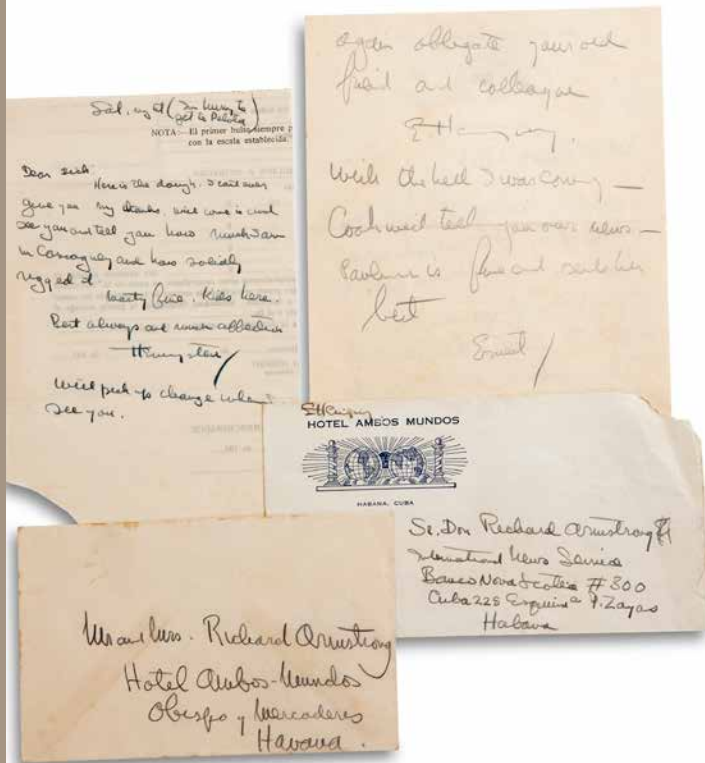 Sat. night (In hurry to
get to Pelota)
NOTA:—El primer bulto siempre p
con la escala establecida.
Dear Dick
Here is the dough. I can't ever
give you my thanks. Will come in and
see you and tell you how much I am
in
and how solidly
rugged it
Kids here.
Best always and much affection
Hemingstein
Will pick up change when I
see you.
again obligate your old
friend and colleague
EHemingway.
Wish the hell I was coming —
Cook will tell you our news —
Pauline is fine and sends her
best
Ernest
EHemingway
HOTEL AMBOS MUNDOS
HABANA, CUBA
Sr. Don Richard Armstrong
International News Service
Banco Nova Scotia #300
Cuba 225 Esquina P. Zayas
Habana
Mr and Mrs. Richard Armstrong
Hotel Ambos-Mundos
Obispo y Mercaderes
Havana.